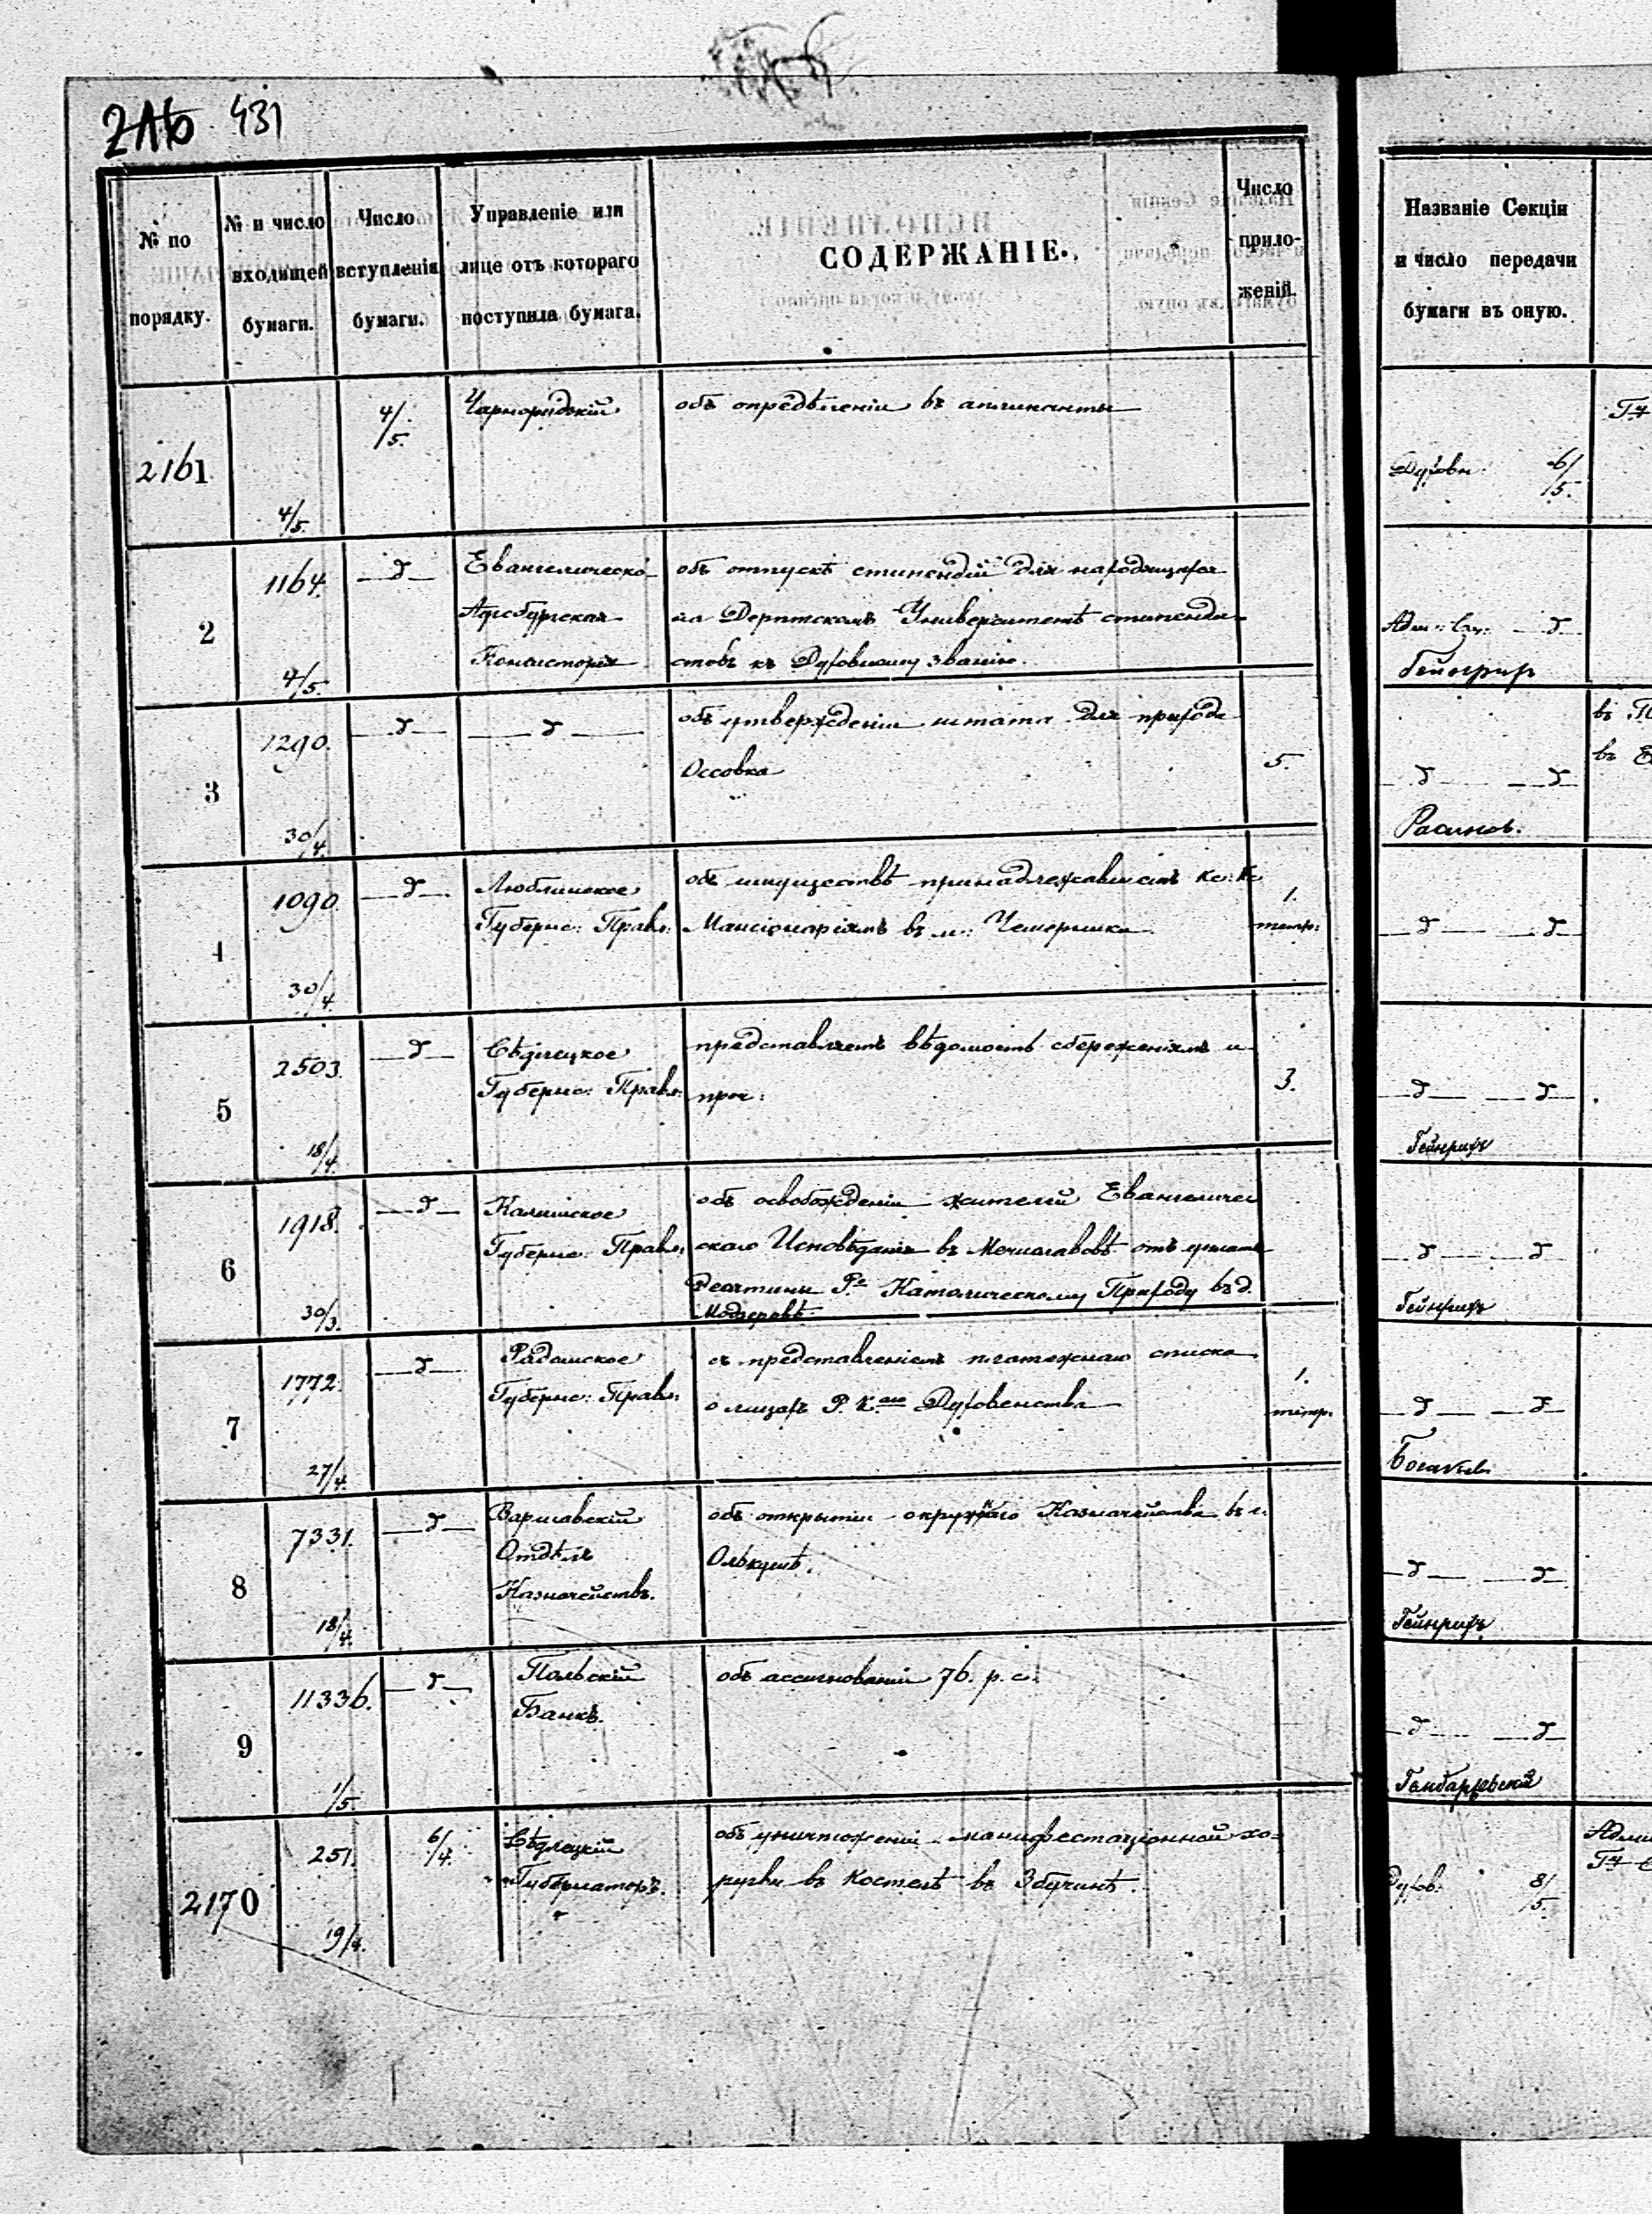 431
№ по порядку.
№ и число входящей бумаги.
Число вступленія бумаги.
Управленіе или лице отъ котораго поступила бумага.
СОДЕРЖАНІЕ.
Число приложеній.
Названіе Секціи и число передачи бумаги въ оную.
2161
4/5.
4/5.
объ опредѣленіи въ аппликанты
Духовн.
6/5.
2
1164.
4/5.
—д—
Евангелическо
Аугсбургская
Консисторія
объ отпускѣ стипендій для находящихся
на Дерптскомъ Университетѣ стипенди-
стовъ къ Духовному званію.
—д
Гейнрихъ
3
1290.
30/4.
—д—
—д—
объ утвержденіи штата для прихода
Оссовка
5.
—д— —д
4
1090.
30/4.
—д—
Люблинское
Губернс: Правл:
объ имуществѣ принадлежавшемъ Кс: Кс
Мансіонаріямъ въ м:
1.
тетр:
—д— —д—
5
2503.
18/4.
—д—
Сѣдлецкое
Губернс: Правл:
представляетъ вѣдомость сбереженіямъ и
проч:
3.
—д— —д—
Гейнрихъ
6
1918.
30/3.
—д—
Калишское
Губернс: Правл:
объ освобожденіи жителей Евангеличес
скаго Исповѣданія въ Мечиславовѣ отъ уплаты
десятины Р. Католическому Приходу въ д.
Модзеровѣ.
—д— —д—
Гейнрихъ
7
1772.
27/4.
—д—
Радомское
Губернс: Правл:
съ представленіемъ платежнаго списка
о лицахъ Р. К. Духовенства
1.
тетр.
—д— —д—
8
7331.
18/4.
—д—
Варшавскій
Отдѣлъ
Казначействъ.
объ открытіи окружнаго Казначейства въ г.
Олькушѣ.
—д— —д—
Гейнрихъ
9
11336.
1/5.
—д—
Польскій
Банкъ.
объ ассигнованіи 76. р. с.
—д— —д—
2170
251.
19/4.
6/4.
Сѣдлецкій
Губернаторъ.
объ уничтоженіи манифестаціонной хо-
ругви въ Костелѣ въ Збучинѣ.
Духов.
8/5.